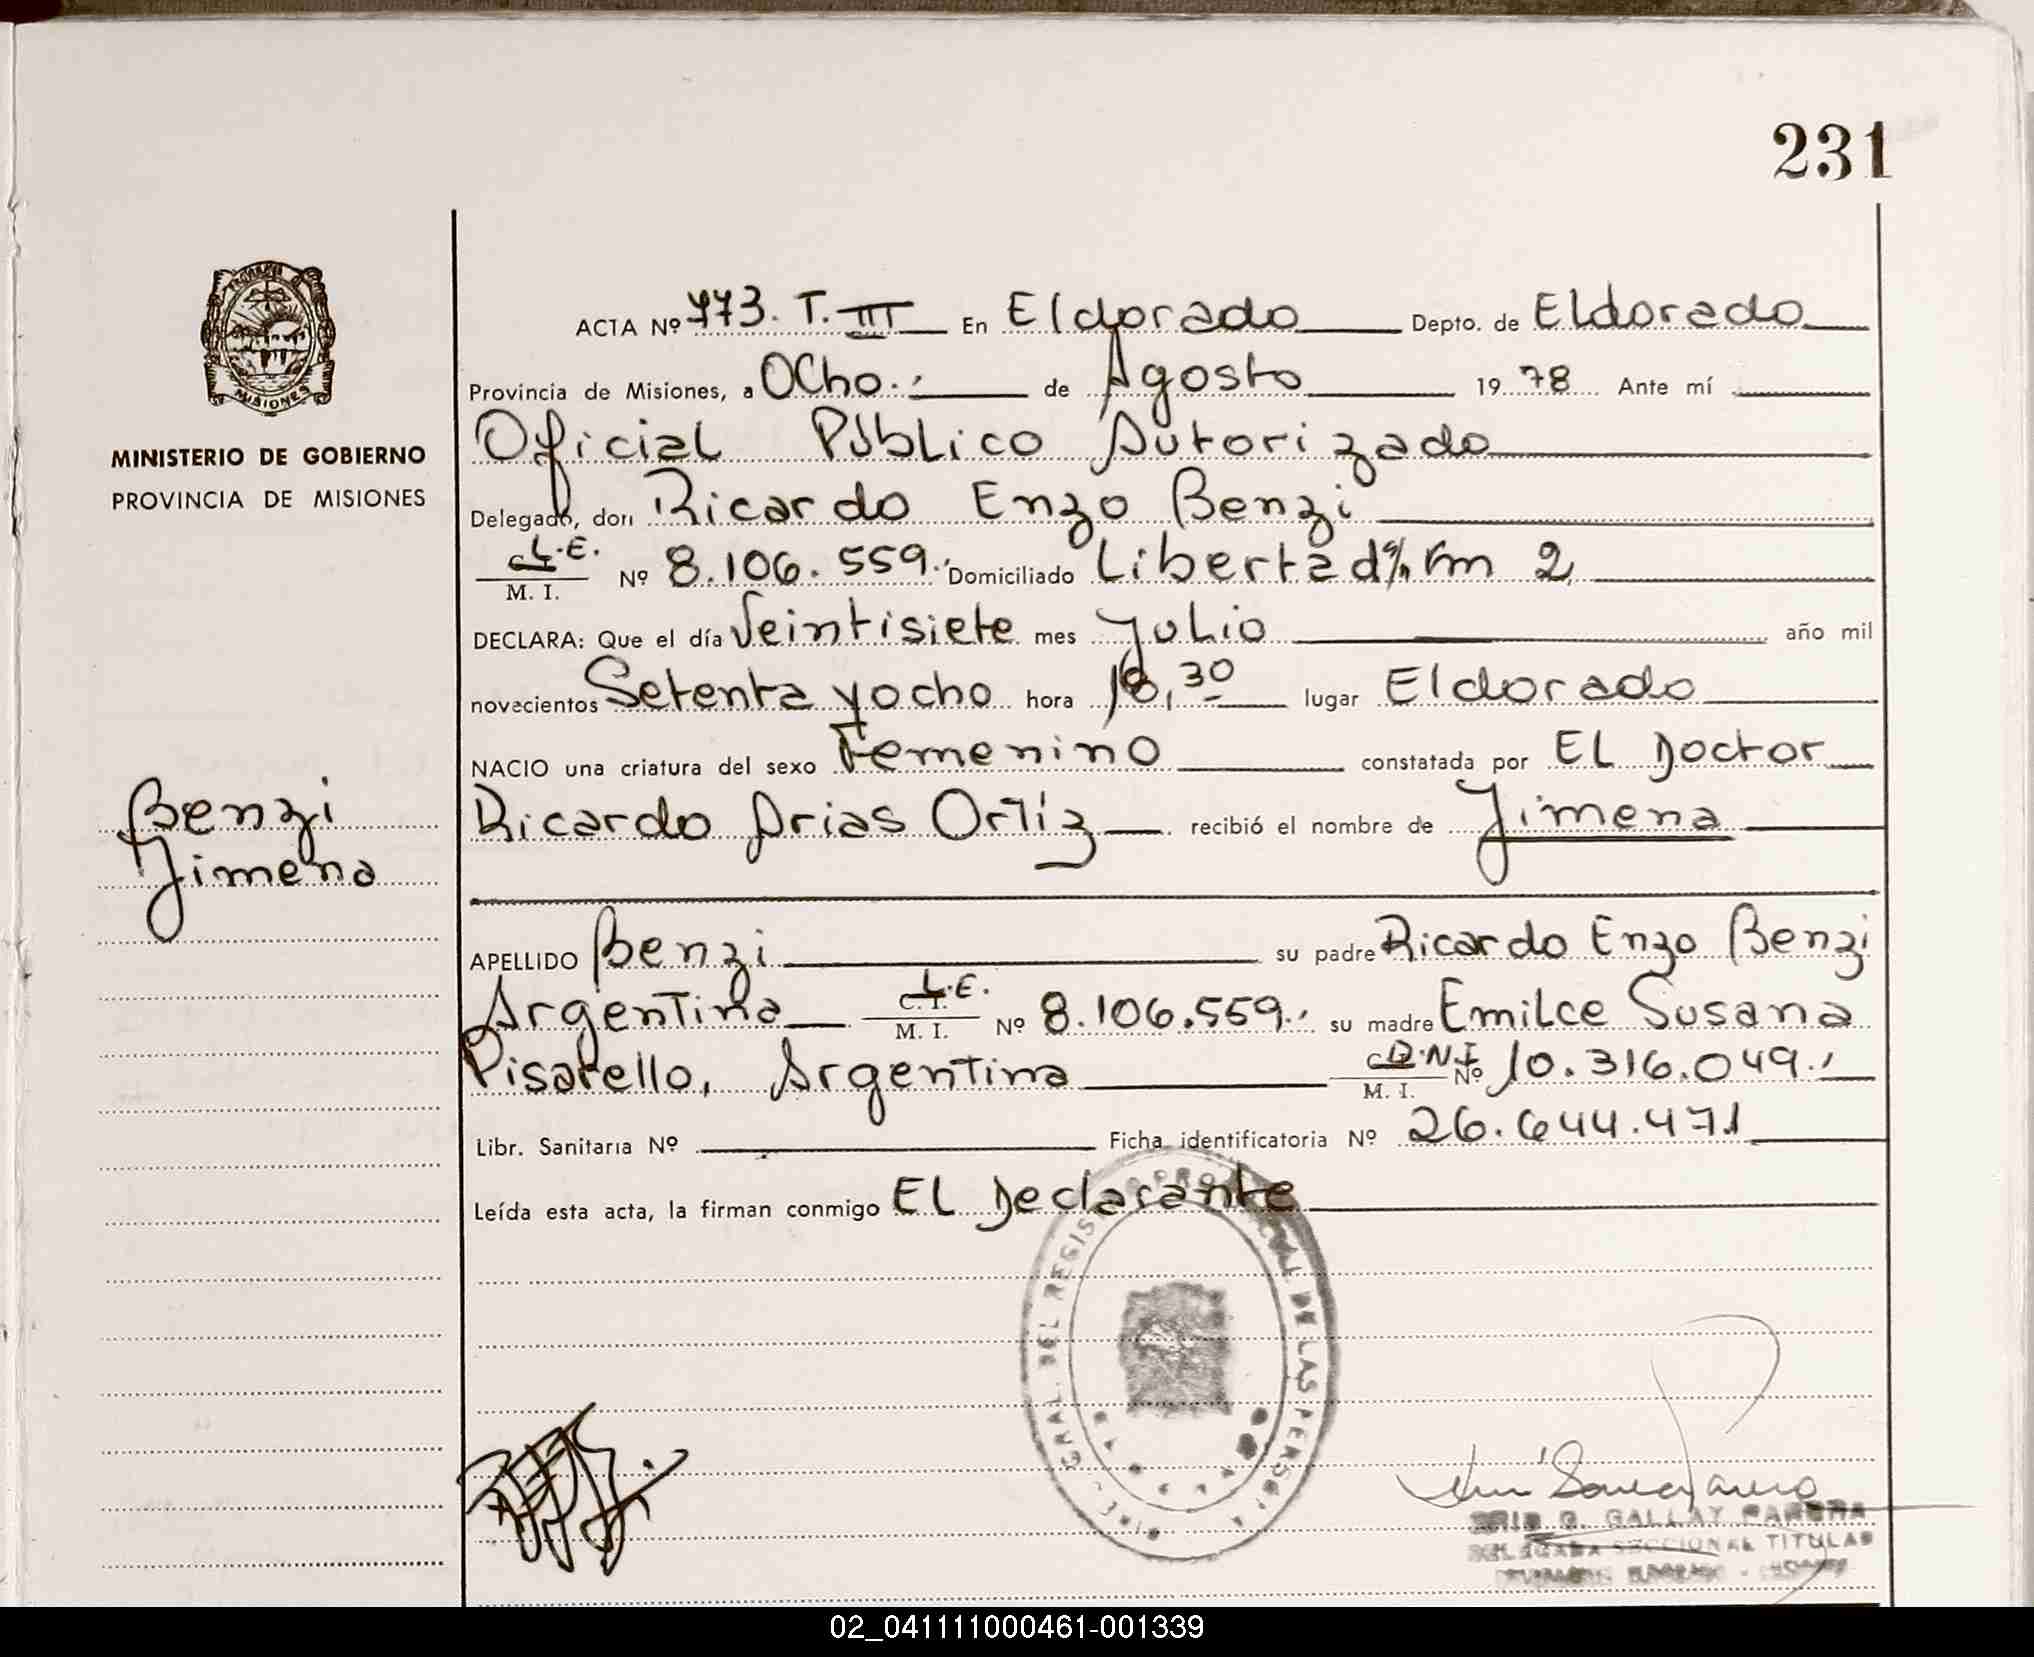 231
MISIONES
MINISTERIO DE GOBIERNO
PROVINCIA DE MISIONES
Benzi
Jimena
ACTA Nº 773. T. III En Eldorado Depto. de Eldorado
Provincia de Misiones, a Ocho.. de Agosto 19 78 Ante mí
Oficial Público Autorizado
Delegado, don Ricardo Enzo Benzi
L.E.
M. I. Nº 8.106.559. Domiciliado Libertad % Km 2
DECLARA: Que el día Veintisiete mes Julio año mil
novecientos Setenta y ocho hora 18,30 lugar Eldorado
NACIO una criatura del sexo Femenino constatada por El Doctor
Ricardo Arias Ortíz recibió el nombre de Jimena
APELLIDO Benzi su padre Ricardo Enzo Benzi
Argentina C.I. L.E. M. I. Nº 8.106.559. su madre Emilce Susana
Pisarello, Argentina D.N.I. M. I. Nº 10.316.049.
Libr. Sanitaria Nº Ficha identificatoria Nº 26.644.471
Leída esta acta, la firman conmigo El Declarante
GRAL. DEL REGIS DE LAS PERSO
G. GALLAY PARERA
DELEGADA SECCIONAL TITULAR
02_041111000461-001339